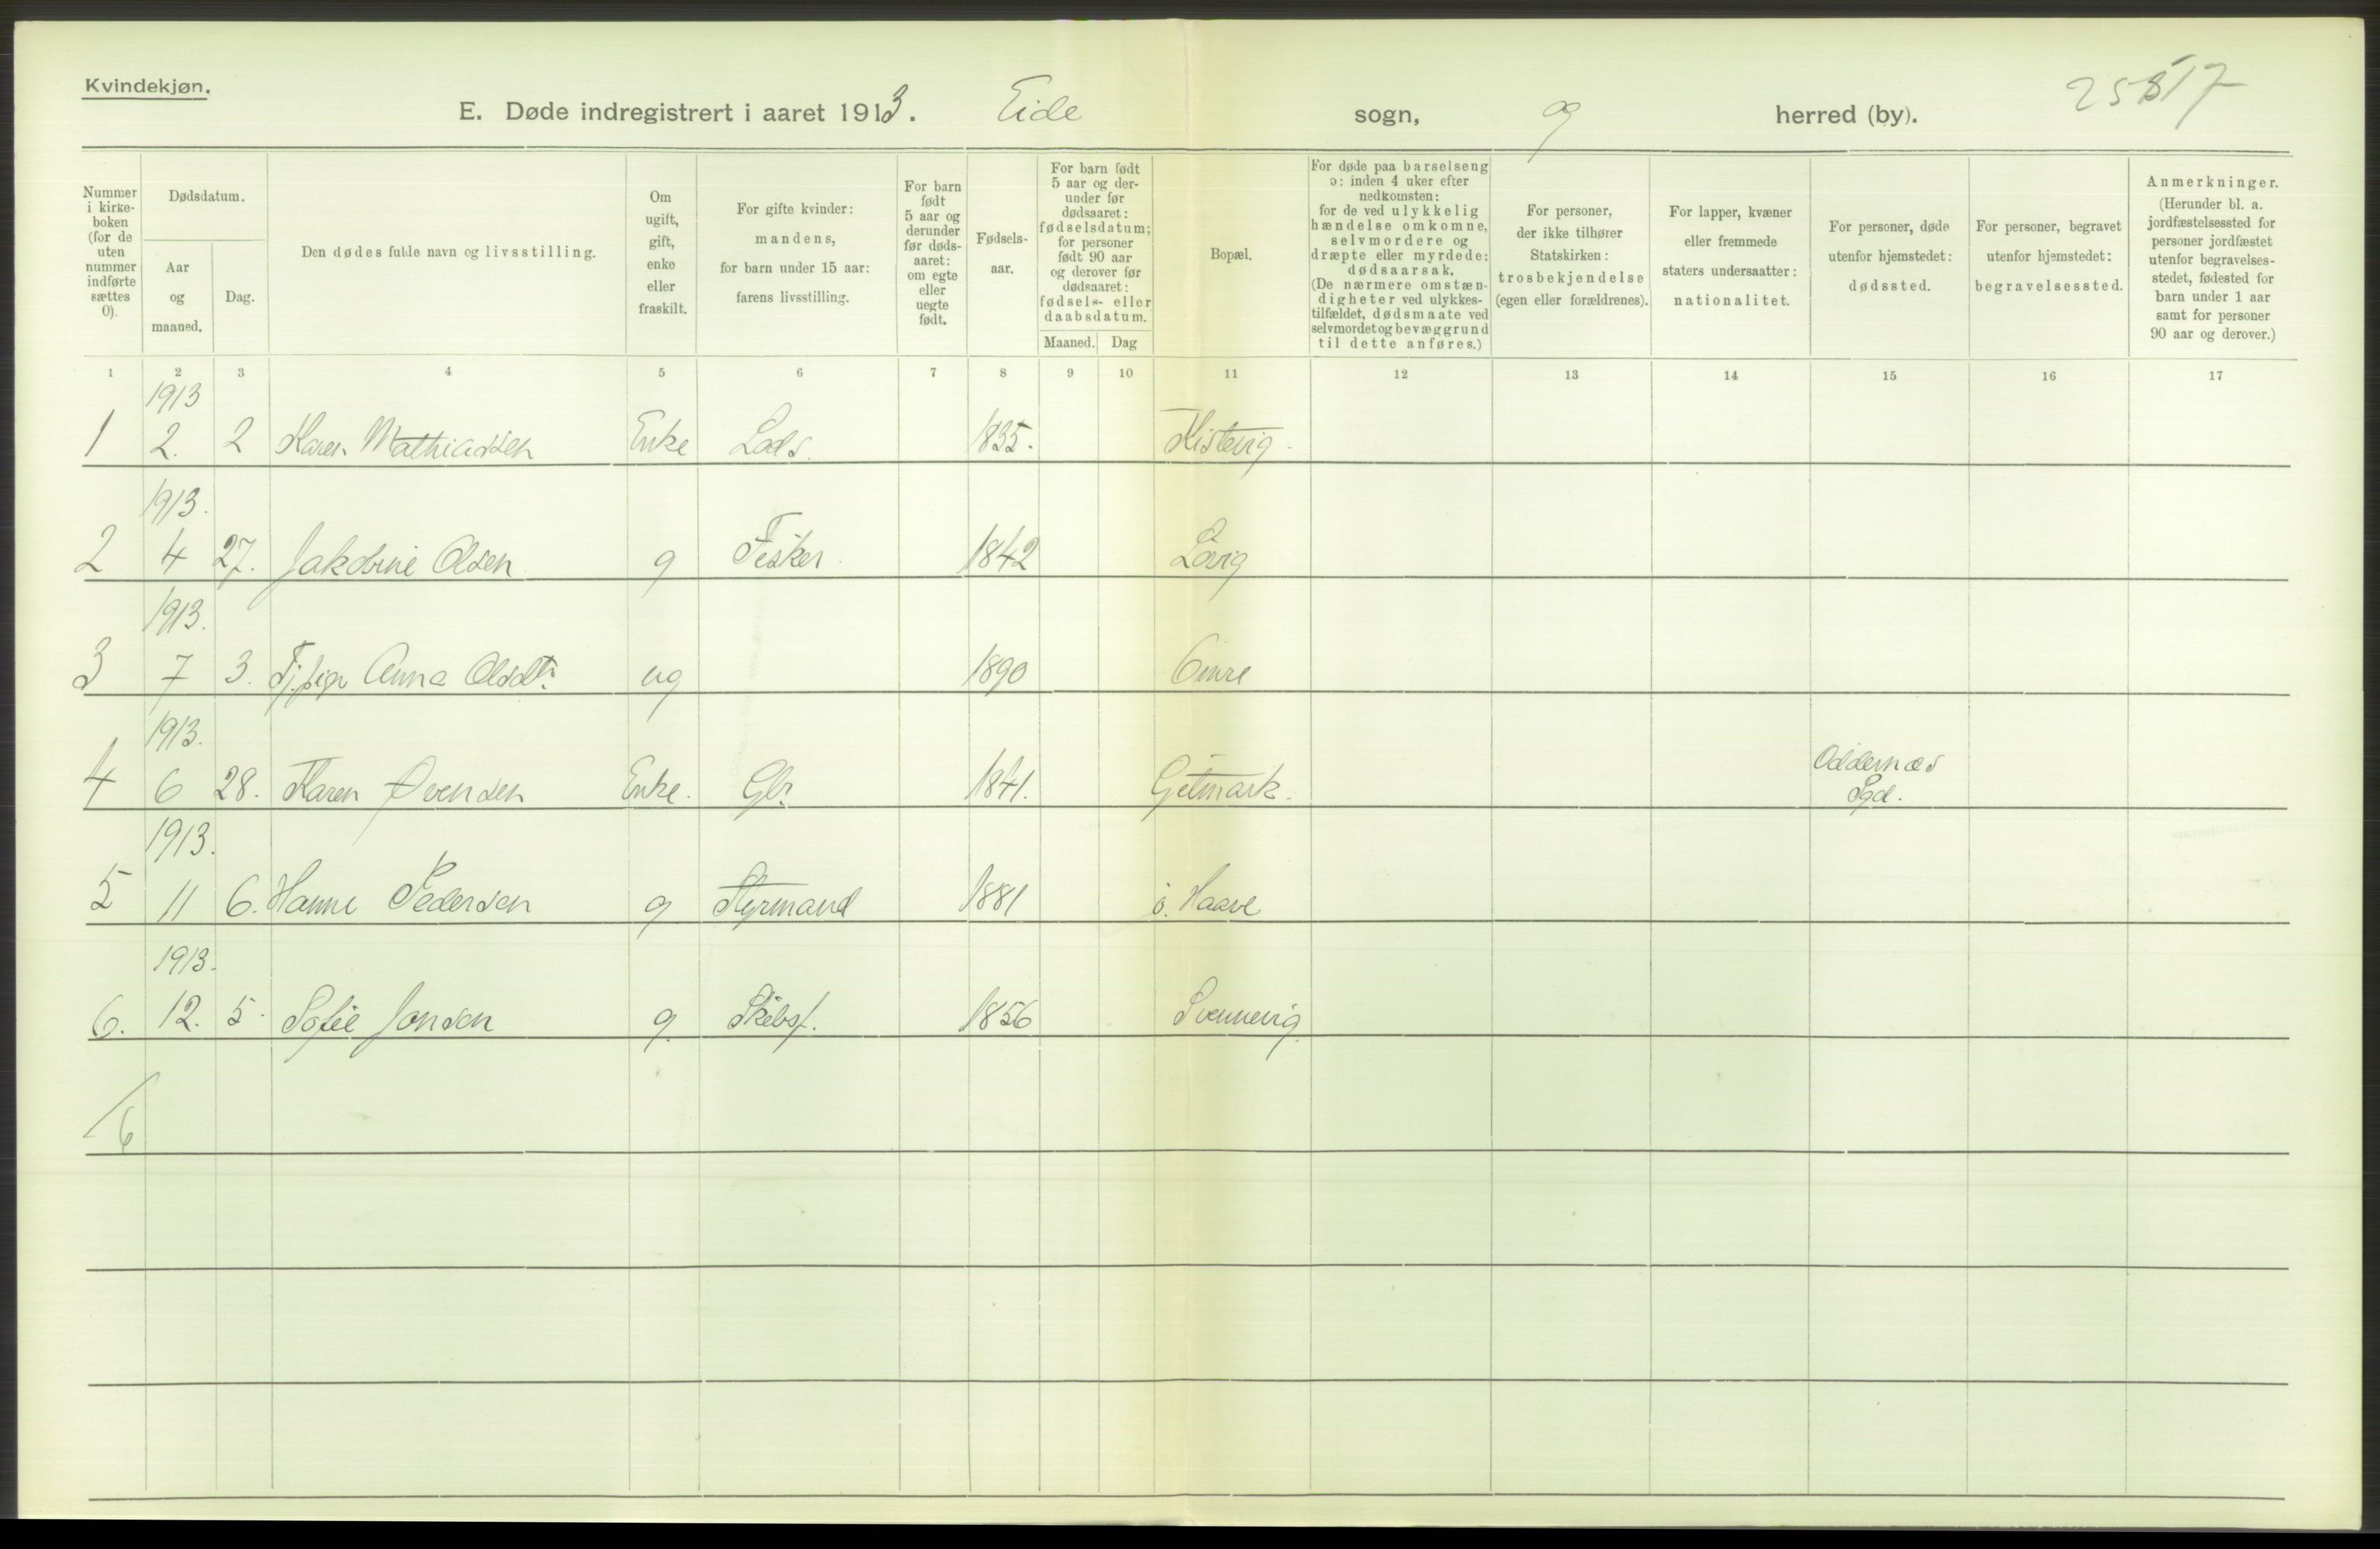 Kvindekjøn.
E. Døde indregistrert i aaret 1913. Eide sogn, og herred (by).
Nummer i kirke-boken (for de uten nummer indførte sættes 0).
Dødsdatum.
Aar og maaned.
Dag.
Den dødes fulde navn og livsstilling.
Om ugift, gift, enke eller fraskilt.
For gifte kvinder: mandens, for barn under 15 aar: farens livsstilling.
For barn født 5 aar og derunder før døds-aaret: om egte eller uegte født.
Fødsels-aar.
For barn født 5 aar og der-under før dødsaaret: fødselsdatum; for personer født 90 aar og derover før dødsaaret: fødsels- eller daabsdatum.
Maaned. Dag
Bopæl.
For døde paa barselseng ɔ: inden 4 uker efter nedkomsten: for de ved ulykkelig hændelse omkomne, selvmordere og dræpte eller myrdede: dødsaarsak. (De nærmere omstæn-digheter ved ulykkes-tilfældet, dødsmaate ved selvmordet og bevæggrund til dette anføres.)
For personer, der ikke tilhører Statskirken: trosbekjendelse (egen eller forældrenes).
For lapper, kvæner eller fremmede staters undersaatter: nationalitet.
For personer, døde utenfor hjemstedet: dødssted.
For personer, begravet utenfor hjemstedet: begravelsessted.
Anmerkninger. (Herunder bl. a. jordfæstelsessted for personer jordfæstet utenfor begravelses-stedet, fødested for barn under 1 aar samt for personer 90 aar og derover.)
1 2 3 4 5 6 7 8 9 10 11 12 13 14 15 16 17
1913
1 2. 2 Karen Mathiassen Enke Lods. 1835. Kistevig.
1913.
2 4 27. Jakobine Olsen g Fisker. 1842 Løvig
1913.
3 7 3. Tj.pige Anna Olsdtr. ug 1890 Omre
1913.
4 6 28. Karen Øvensen Enke. Gbr. 1841. Geitmark. Oddernæs Sgd.
1913.
5 11 6. Hanne Pedersen g Styrmand 1881 ö. Haave
1913.
6. 12. 5. Sofie Jonsen g. Skibsf. 1856 Svennevig.
6